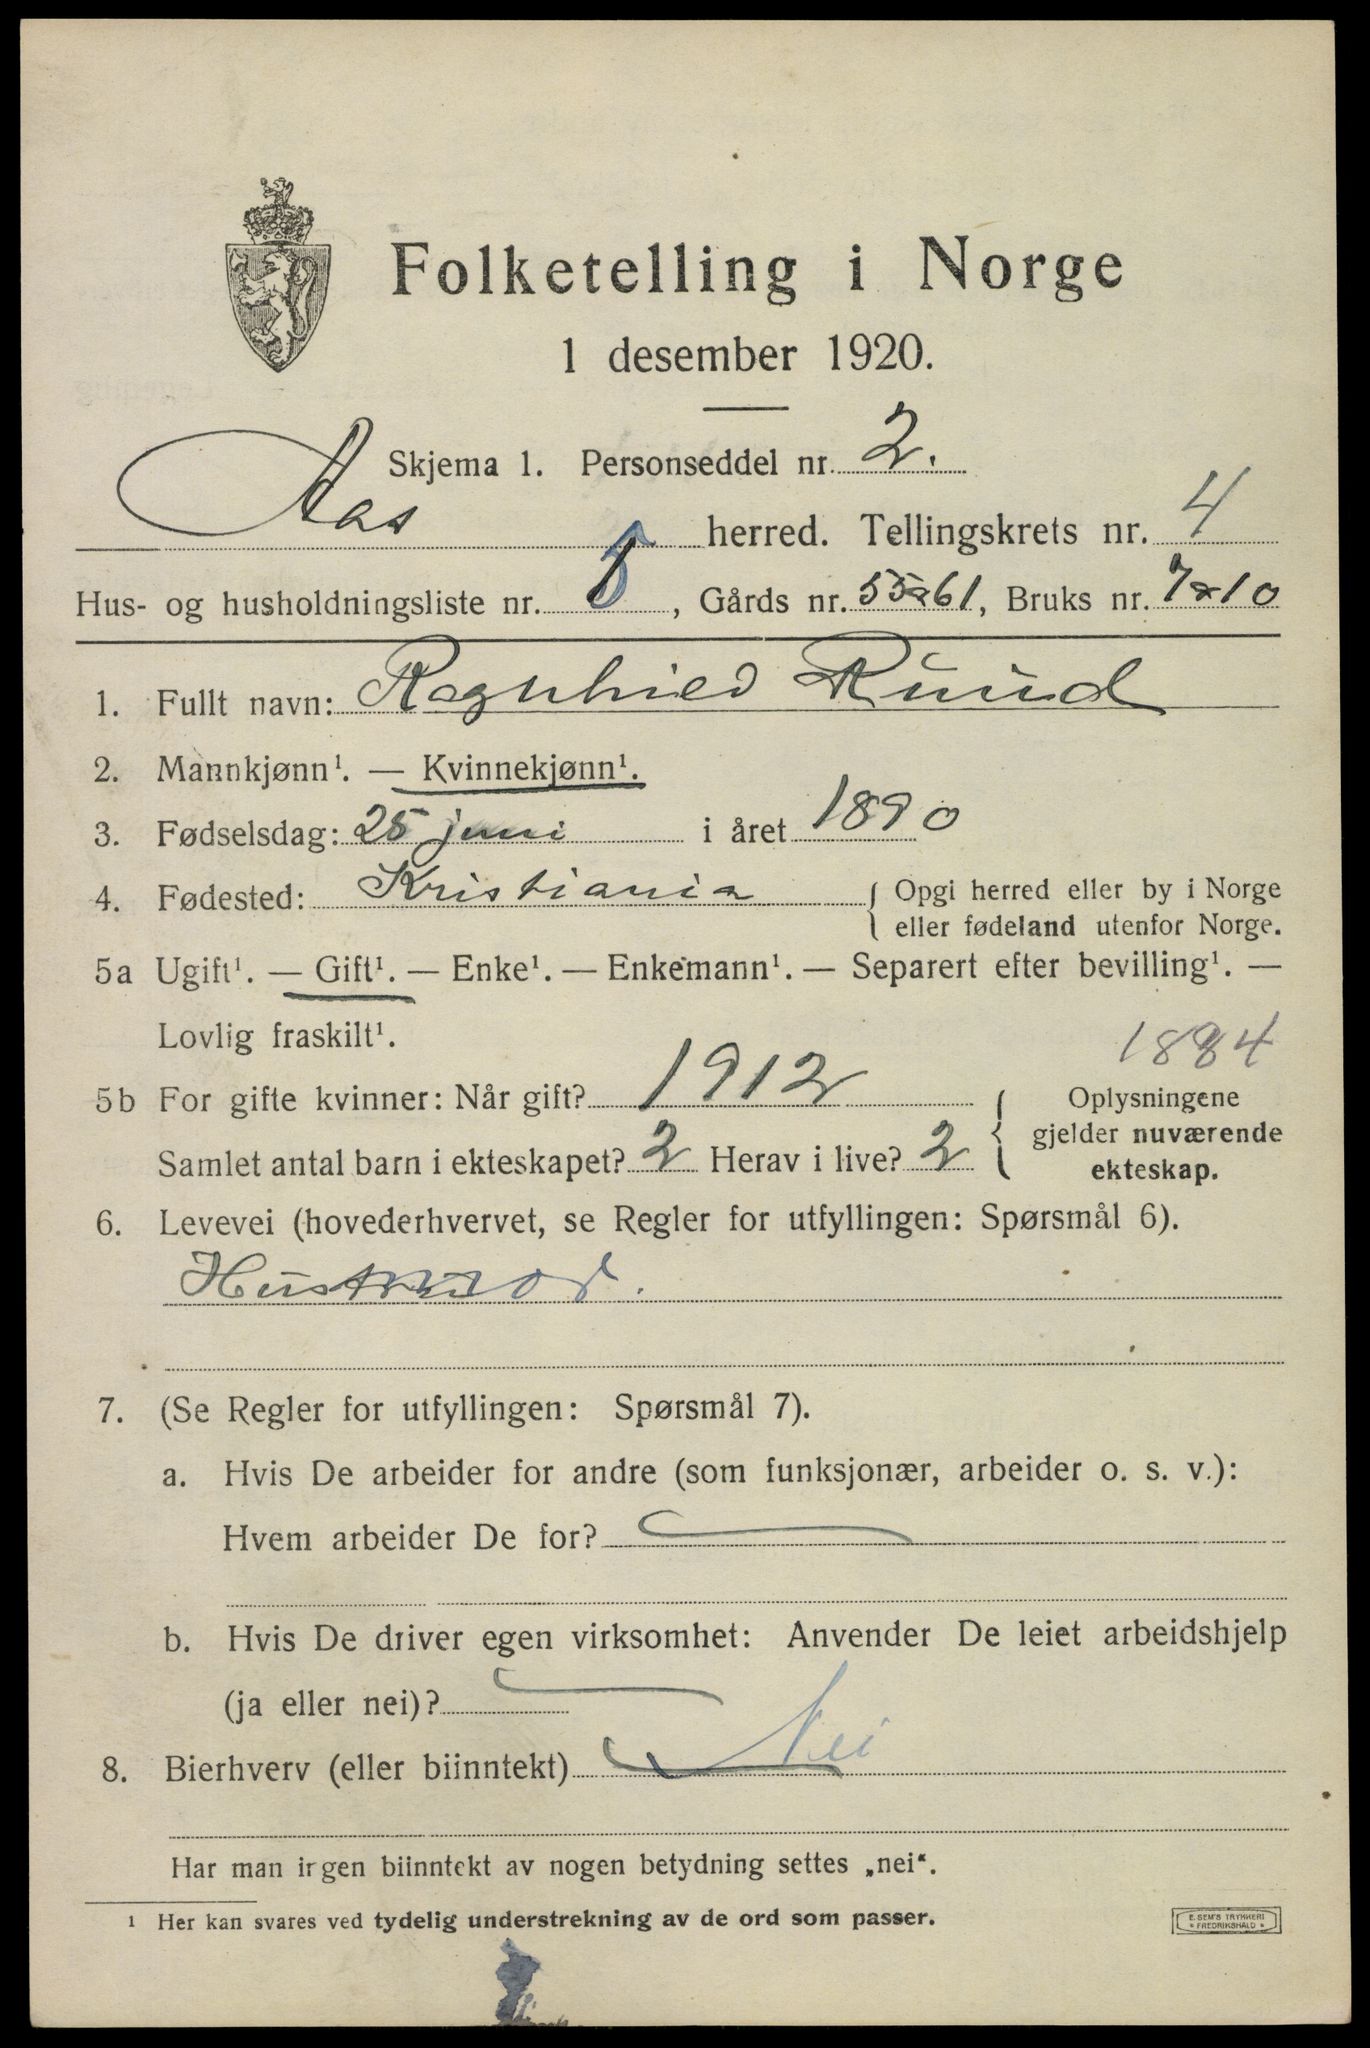 Folketelling i Norge
1 desember 1920.
Skjema 1. Personseddel nr. 2.
Aas herred. Tellingskrets nr. 4
Hus- og husholdningsliste nr. , Gårds nr. 55 a 61, Bruks nr. 7 a 10
1. Fullt navn: Ragnhild Ruud
2. Mannkjønn¹. — Kvinnekjønn¹.
3. Fødselsdag: 25 juni i året 1890
4. Fødested: Kristiania { Opgi herred eller by i Norge
eller fødeland utenfor Norge.
5a Ugift¹. — Gift¹. — Enke¹. — Enkemann¹. — Separert efter bevilling¹. —
Lovlig fraskilt¹.
1884
5b For gifte kvinner: Når gift? 1912
Samlet antal barn i ekteskapet? 2 Herav i live? 2
{ Oplysningene
gjelder nuværende
ekteskap.
6. Levevei (hovederhvervet, se Regler for utfyllingen: Spørsmål 6).
Husmor.
7. (Se Regler for utfyllingen: Spørsmål 7).
a. Hvis De arbeider for andre (som funksjonær, arbeider o. s. v.):
Hvem arbeider De for?
b. Hvis De driver egen virksomhet: Anvender De leiet arbeidshjelp
(ja eller nei)?
8. Bierhverv (eller biinntekt) Nei
Har man irgen biinntekt av nogen betydning settes „nei“.
¹ Her kan svares ved tydelig understrekning av de ord som passer.
E. SEM'S TRYKKERI
* FREDRIKSHALD *